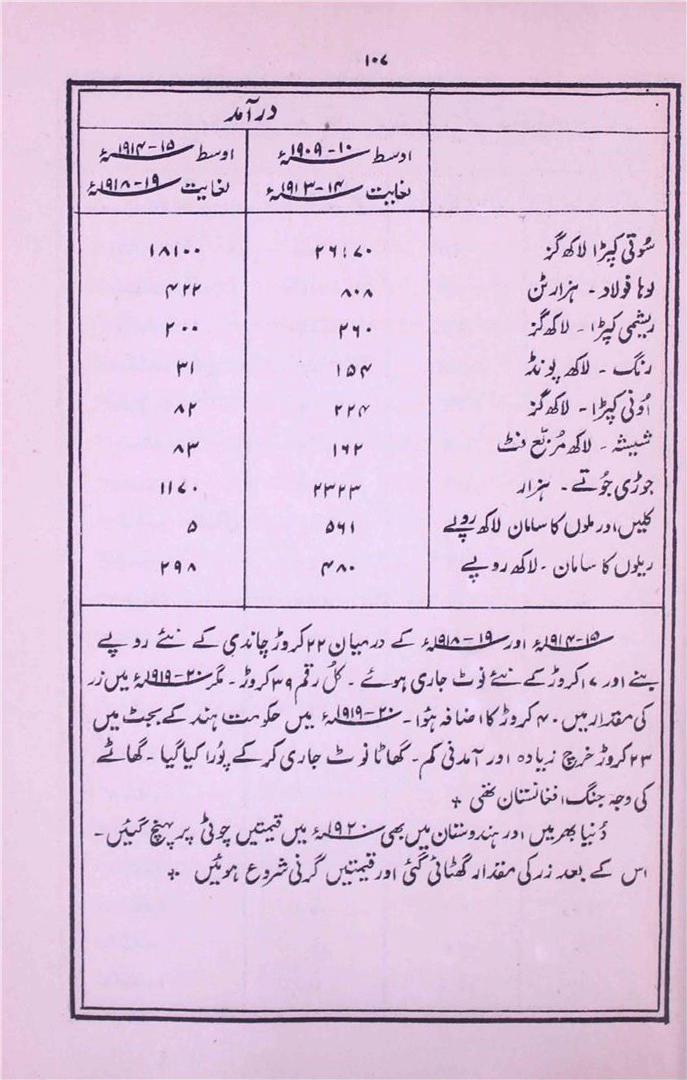 ۱۰۷
درآمد
اوسط ۱۰-۱۹۰۹ء اوسط ۱۵-۱۹۱۴ء
لغایت ۱۴-۱۹۱۳ء لغایت ۱۹-۱۹۱۸ء
سُوتی کپڑا لاکھ گز ۲۶۱۷۰ ۱۸۱۰۰
لوہا فولاد - ہزار ٹن ۸۰۸ ۴۲۲
ریشمی کپڑا - لاکھ گز ۲۶۰ ۲۰۰
رنگ - لاکھ پونڈ ۱۵۴ ۳۱
اُونی کپڑا - لاکھ گز ۲۲۴ ۸۲
شیشہ - لاکھ مُربّع فٹ ۱۶۲ ۸۳
جوڑی جُوتے - ہزار ۲۳۲۳ ۱۱۷۰
کلیں اور ملوں کا سامان لاکھ روپے ۵۶۱ ۵
ریلوں کا سامان - لاکھ روپے ۴۸۰ ۲۹۸
۱۵-۱۹۱۴ء اور ۱۹-۱۹۱۸ء کے درمیان ۲۲ کروڑ چاندی کے نئے روپے
بنے اور ۱۷ کروڑ کے نئے نوٹ جاری ہوئے - کُل رقم ۳۹ کروڑ - مگر ۲۰-۱۹۱۹ء میں زر
کی مقدار میں ۴۰ کروڑ کا اضافہ ہوا - ۲۰-۱۹۱۹ء میں حکومت ہند کے بجٹ میں
۲۳ کروڑ خرچ زیادہ اور آمدنی کم - گھاٹا نوٹ جاری کرکے پُورا کیا گیا - گھاٹے
کی وجہ جنگ افغانستان تھی ٭
دُنیا بھر میں اور ہندوستان میں بھی ۱۹۲۰ء میں قیمتیں چوٹی پر پہنچ گئیں -
اس کے بعد زر کی مقدار گھٹائی گئی اور قیمتیں گرنی شروع ہوئیں ٭